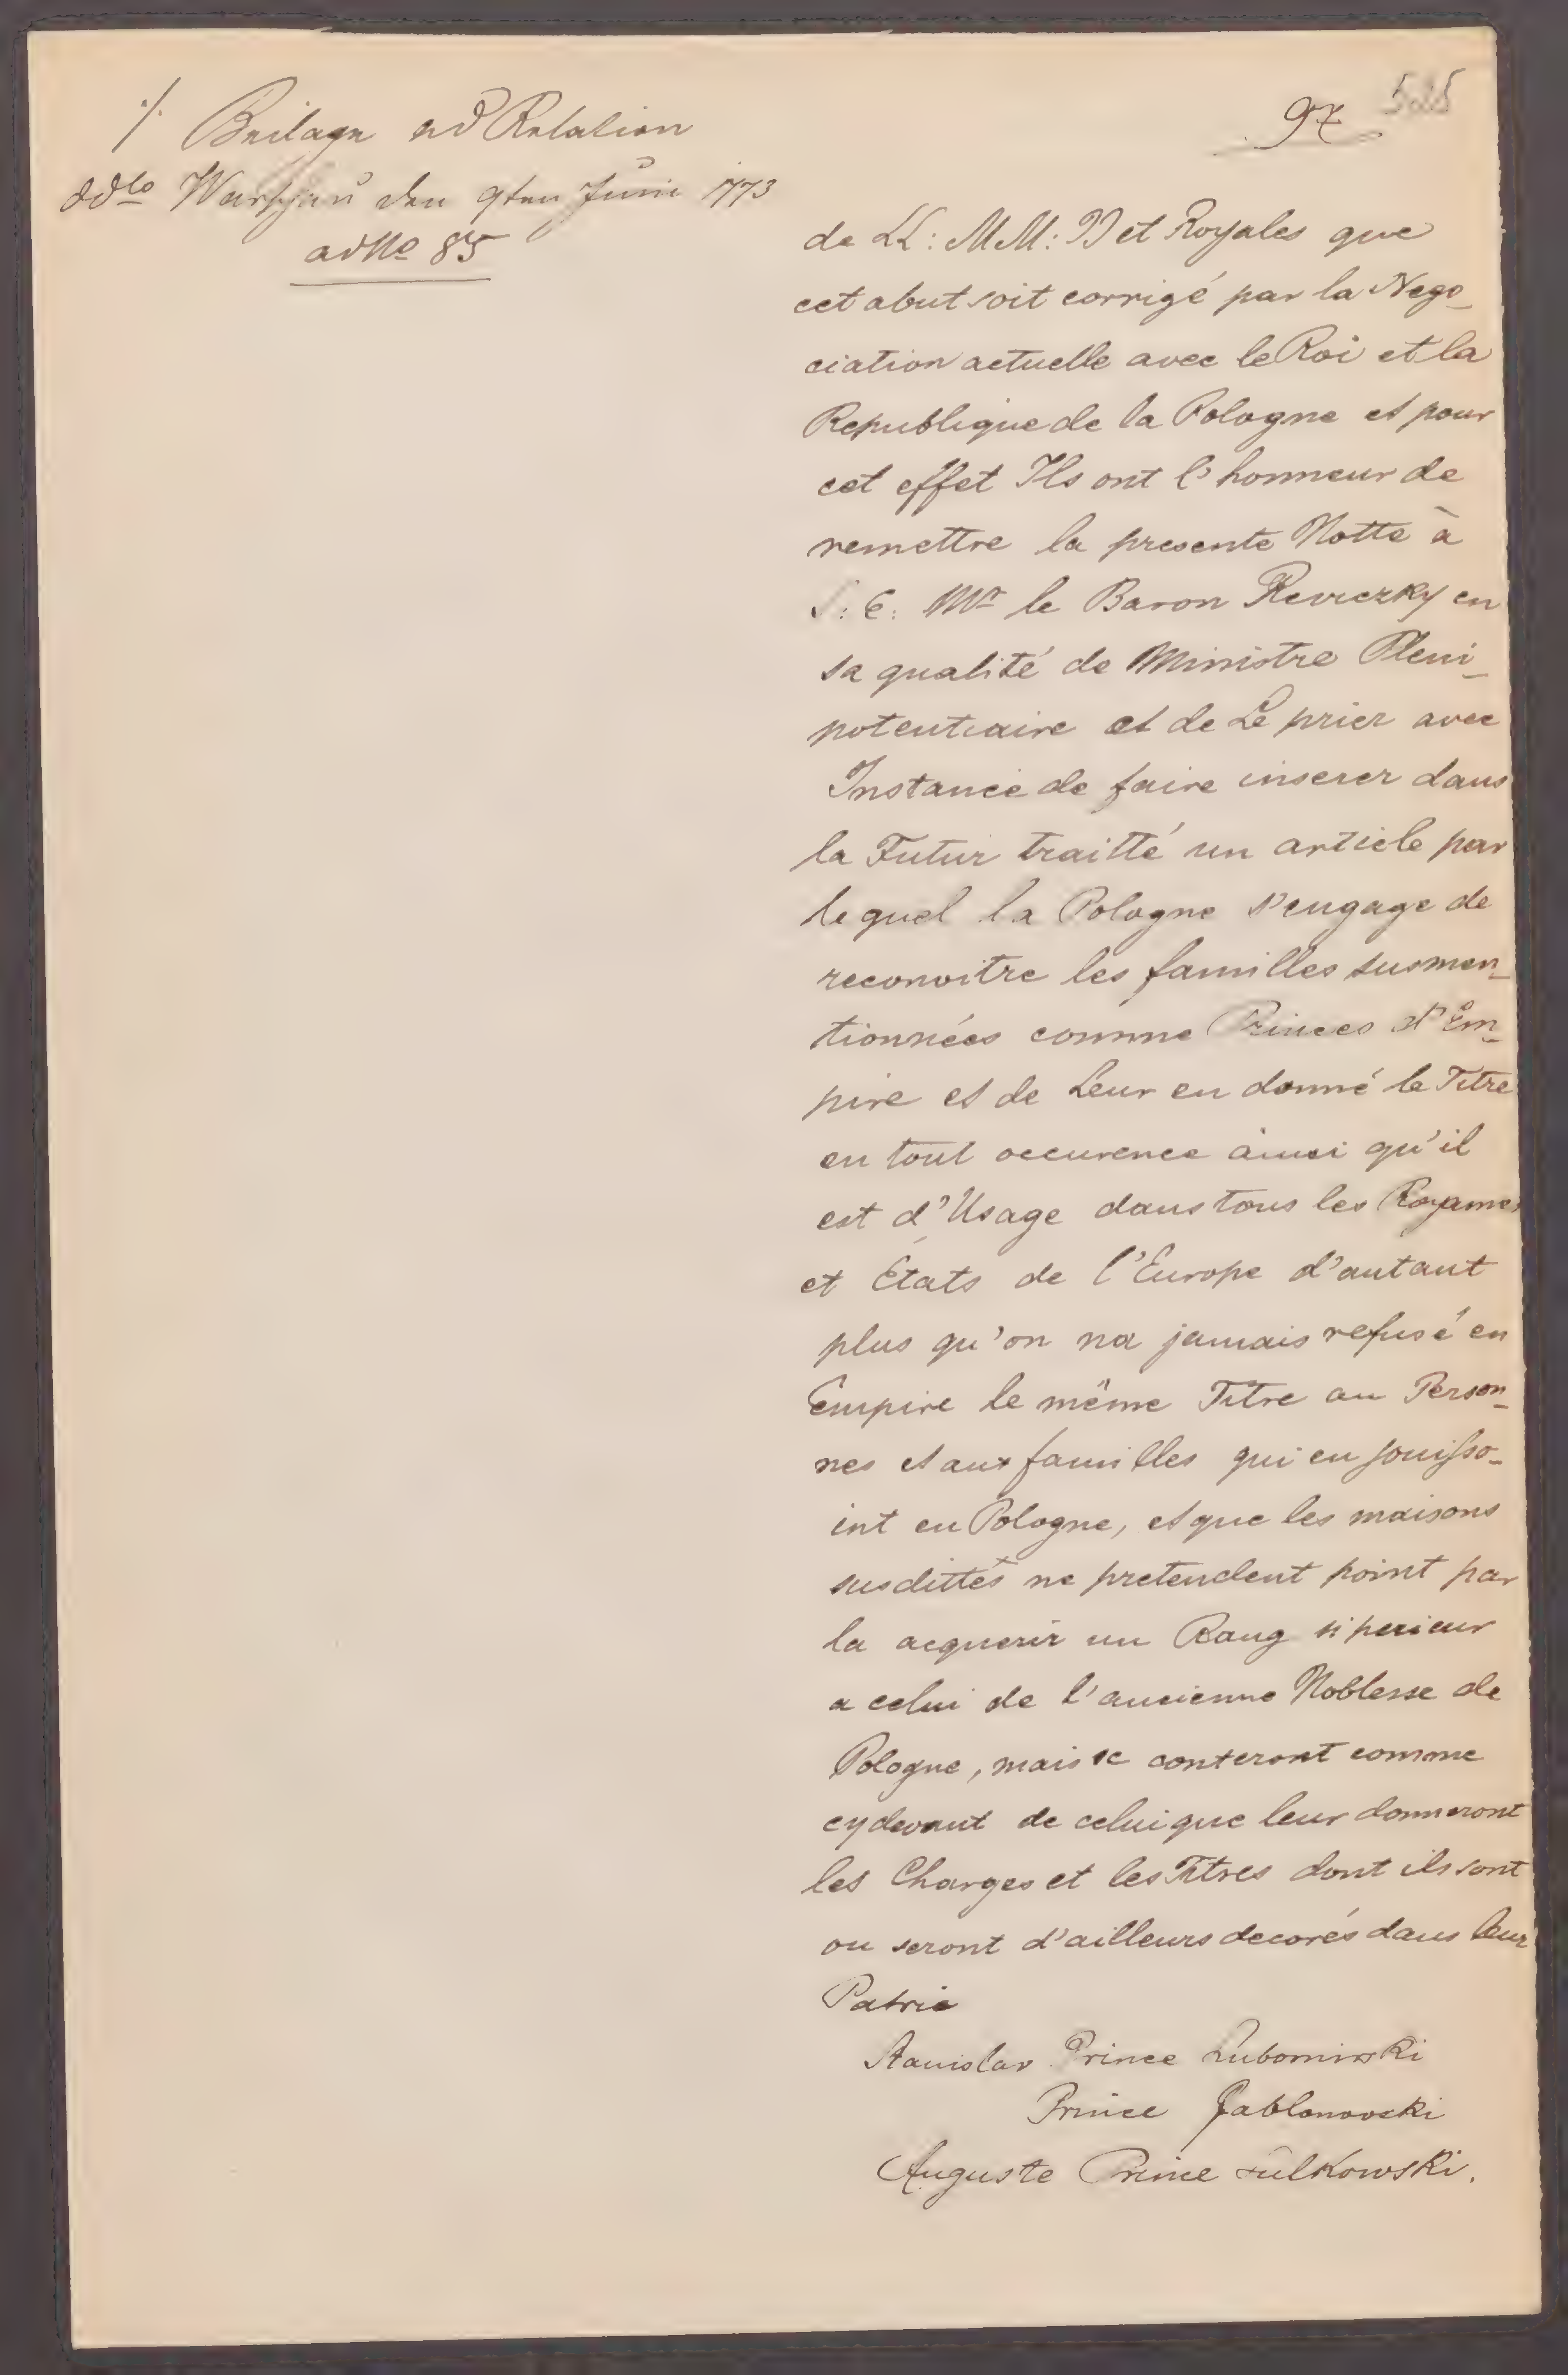 ./. Beilage ad Relation
ddto Warschau den 9ten Juni 1773
ad No 85
97
de LL: MM: II et Royales que
cet abut soit corrigé par la Nego_
ciation actuelle avec le Roi et la
Republique de la Pologne et pour
cet effet Ils ont l'honneur de
remettre la presente Notte à
S: E: Mr le Baron Reviczky en
sa qualité de Ministre Pleni_
potentiaire et de Le prier avec
Instance de faire inserer dans
la Futur traitté un article par
le quel la Pologne s'engage de
reconoitre les familles susmen_
tionnées comme Princes d'Em_
pire et de Leur en donné le Titre
en tout occurence ainsi qu'il
est d'Usage dans tous les Royames
et Etats de l'Europe d'autant
plus qu'on na jamais refusé en
Empire le même Titre au Person_
nes et aux familles qui en jouisso_
int en Pologne, et que les maisons
susdittes ne pretendent point par
la acquerir un Rang siperieur
a celui de l'ancienne Noblesse de
Pologne, mais se conteront comme
cydevant de celui que leur donneront
les Charges et les Titres dont ils sont
ou seront d'ailleurs decorés dans leur
Patrie
Stanislav Prince Lubomirski
Prince Jablonowski
Auguste Prince Sulkowski.